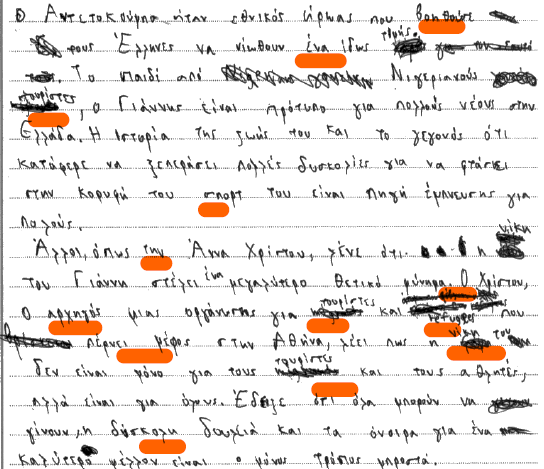 Ο Αντετοκούμπο ήταν εθνικός ήρωας που βοηθούσε
τους Έλληνες να νιώθουν ένα ίδιος τιμής.
Το παιδί από Νιγεριανούς
τουρίστες, ο Γιάννης είναι πρότυπο για πολλούς νέους στην
Ελλάδα. Η Ιστορία της ζωής του και το γεγονός ότι
κατάφερε να ξεπεράσει πολλές δυσκολίες για να φτάσει
στην κορυφή του σπορτ του είναι πηγή έμπνευσης για
πολούς.
Άλλοι, όπως την Άνα Χρίστου, λένε ότι η νίκη
του Γιάννη στέλει ένα μεγαλύτερο θετικό μύνημα. Ο Χρίστου,
ο αρχηγός μιας οργάνωσης για τουρίστες και που
πέρνει μέρος στην Αθήνα, λέει πως η νίκη του
δεν είναι μόνο για τους τουρίστες και τους αθλητές,
αλλά είναι για όλους. Έδειξε ότι όλα μπορούν να
γίνουν, η δύσκολη δουλειά και τα όνειρα για ένα
καλύτερο μέλλον είναι ο μόνος τρόπος μπροστά.